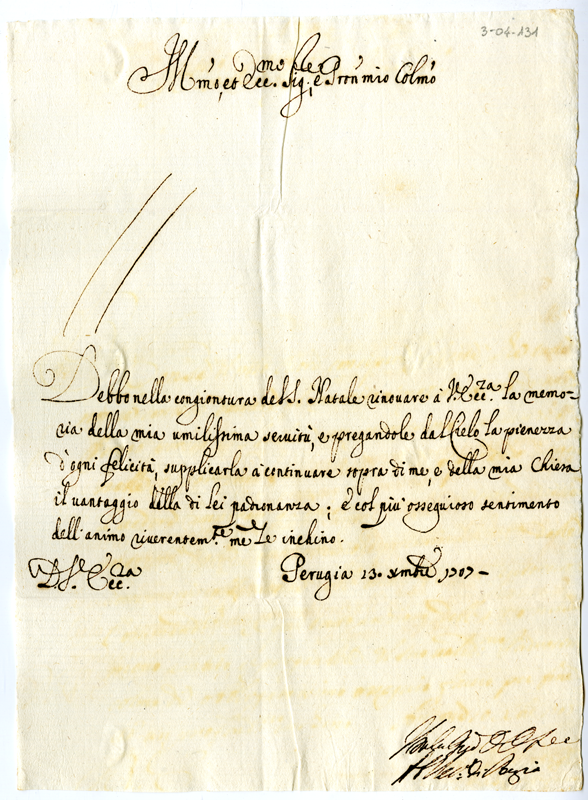 3-04-131
Ill'mo, et Ecc.mo Sig.re e P'ron mio Colmo
Debbo nella congiontura del S. Natale rinouare à V. Ecc.za la memo-
ria della mia umilissima seruitù, e pregandole dal Cielo la pienezza
d'ogni felicità, supplicarla à continuare sopra di me, e della mia Chiesa
il uantaggio della di Lei padronanza; E col più ossequioso sentimento
dell'animo riuerentem.te me Le inchino.
D. V. Ecc.za
Perugia 13. Xmbre 1707-